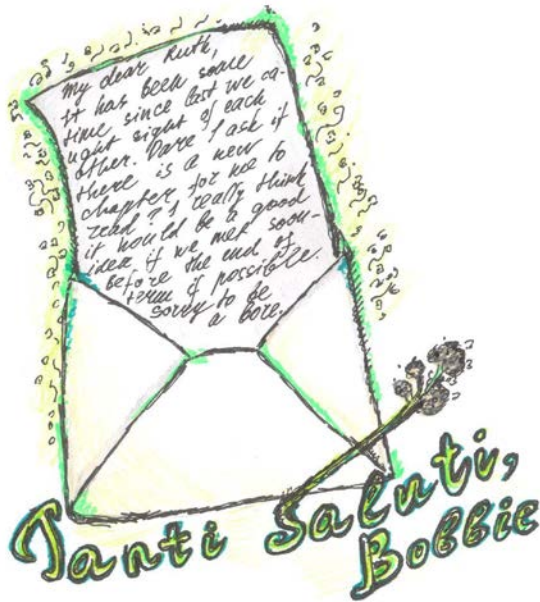 My dear Ruth,
it has been some
time since last we ca-
ught sight of each
other. Dare I ask if
there is a new
chapter for me to
read? I really think
it would be a good
idea if we met soon-
before the end of
term if possible.
Sorry to be
a bore.
Tanti Saluti,
Bobbie